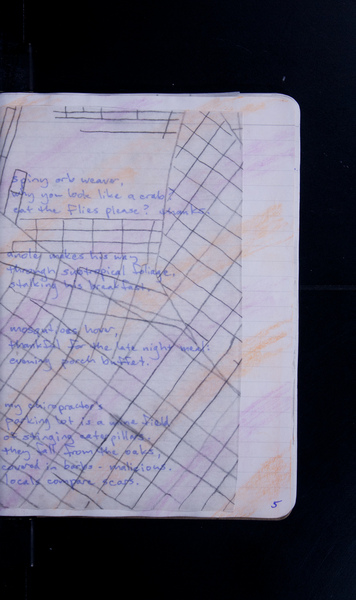 spiny orb weaver,
why you look like a crab?
eat the flies please? thanks.
anole makes his way
through subtropical foliage,
stalking his breakfast.
mosquitoes hour,
thankful for the late night meal:
evening porch buffet.
my chiropractor's
parking lot is a mine field
of stinging caterpillars.
they fall from the oaks,
covered in barbs - malicious.
locals compare scars.
5